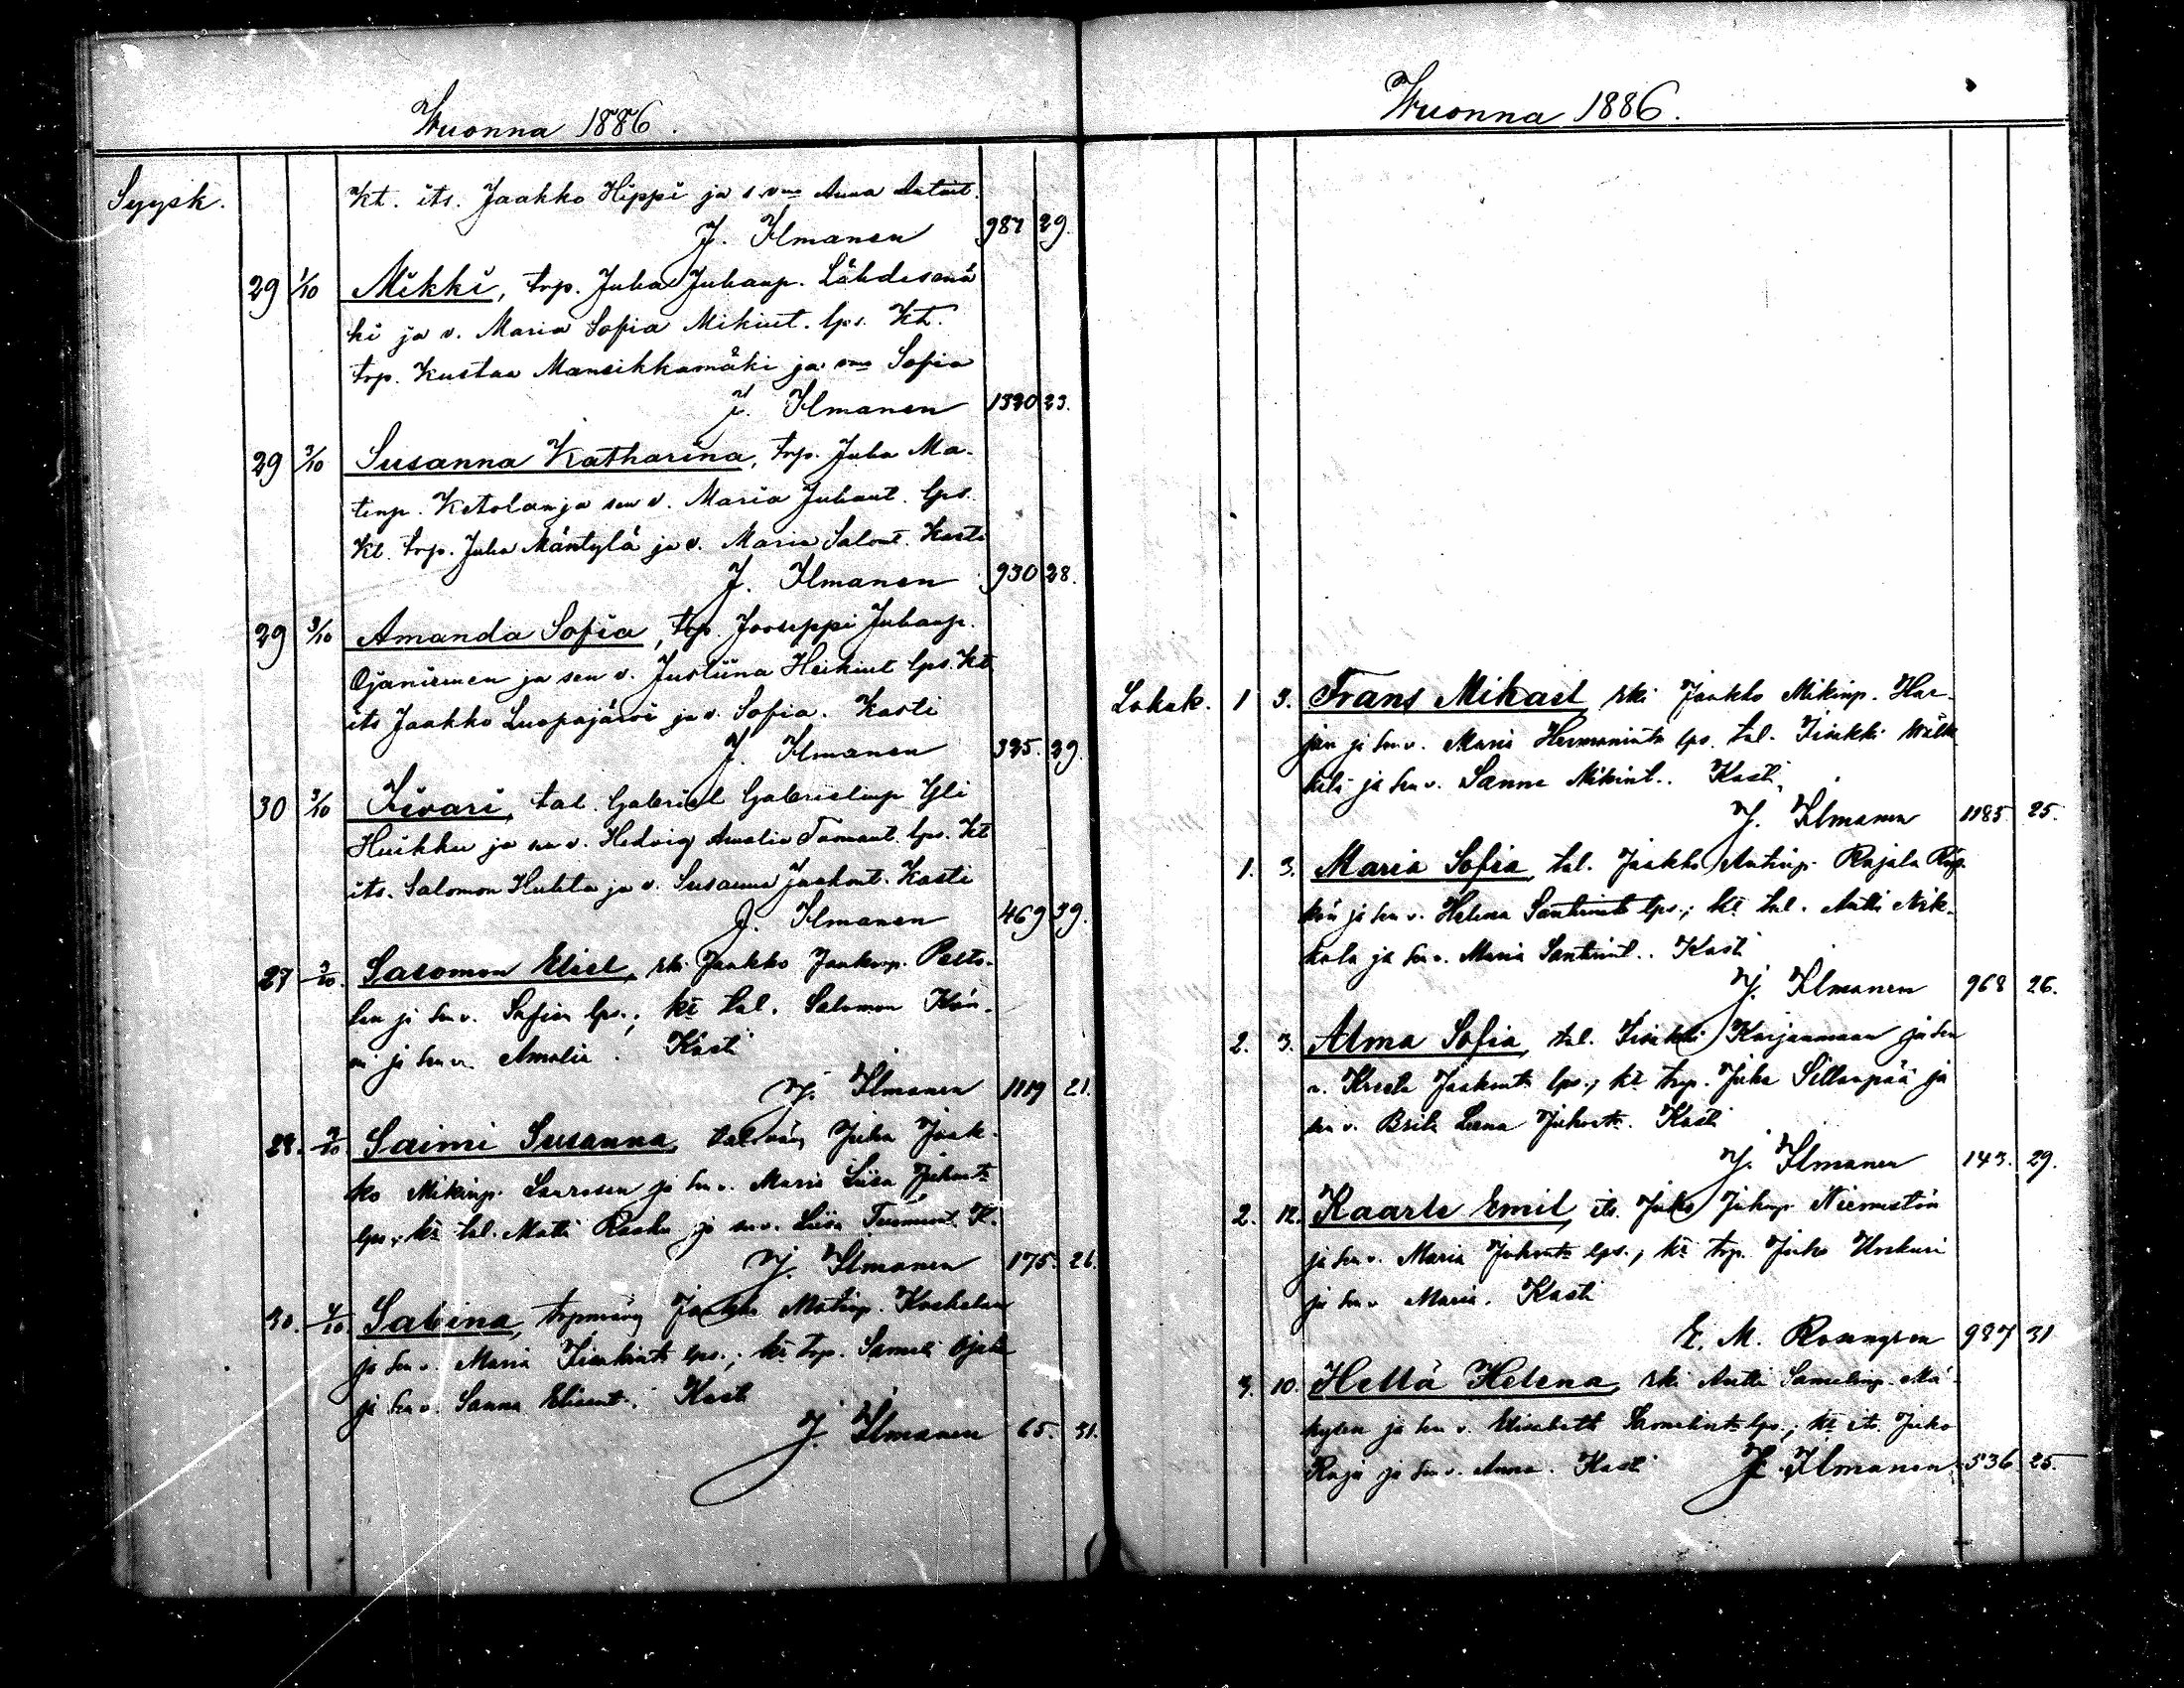 Wuonna 1886.
Syysk.
Kt. its. Jaakko Hippi ja s. vmo Anna Antint.
J. Ilmanen 987 29.
29 1/10 Mikki, trp. Juha Juhanp. Lähdesmä
ki ja v. Maria Sofia Mikint. lps. Kt.
trp. Kustaa Mansikkamäki ja vmo Sofia
J. Ilmanen 1320 23.
29 3/10 Susanna Katharina, trp. Juha Ma-
tinp. Ketolan ja sen v. Maria Juhant. lps.
Kt. trp. Juha Mäntylä ja v. Maria Salont. Kasti
J. Ilmanen 930 28.
29 3/10 Amanda Sofia, trp. Jooseppi Juhanp.
Ojaniemen ja sen v. Justiina Heikint lps. Kt
its Jaakko Luopajärvi ja v. Sofia. Kasti
J. Ilmanen 325. 29.
30 3/10 Iivari, tal. Gabriel Gabrielinp Yli
Huikku ja sen v. Hedvig Amalia Tomaant. lps. Kt
its. Salomon Huhta ja v. Susanna Jaakont. Kasti
J. Ilmanen 469 39.
27 3/10. Salomon Eliel, rki Jaakko Jaakonp. Palto-
sen ja sen v. Sofia lps.; kt tal. Salomon Kön-
ni ja sen v. Amalia. Kasti
J. Ilmanen 1119 21.
28. 3/10 Saimi Susanna, talvävy Juha Jaak-
ko Mikinp. Laurosen ja sen v. Maria Liisa Juhant
lps.; kt tal. Matti Rasku ja sen v. Liisa K.
J. Ilmanen 175. 26.
30. 4/10. Sabina, trpnvävy Jaakko Matinp. Koskelan
ja sen v. Maria Iisakint lps.; kt trp. Sameli Ojala
ja sen v. Sanna Elisent. Kasti
J. Ilmanen 65. 31.
Wuonna 1886.
Lokak. 1 3. Frans Mikael rki Jaakko Mikinp. Har-
jun ja sen v. Maria Hermanint lps. tal. Iisakki
ja sen v. Sanna Mikint.. Kasti.
J. Ilmanen 1185. 25.
1. 3. Maria Sofia, tal. Jaakko Antinp. Rajala
ja sen v. Helena Santerint lps.; kt tal. Antti Nik-
kola ja sen v. Maria Santerint.. Kasti
J. Ilmanen 968 26.
2. 3. Alma Sofia, tal. Iisakki Karjanmaan ja sen
v. Kreeta Jaakont lps.; kt trp. Juha Sillanpää ja
sen v. Brita Leena Juhont. Kasti
J. Ilmanen 143. 29.
2. 12. Kaarle Emil, its. Juho Juhonp. Niemistön
ja sen v. Maria Juhont lps.; kt trp. Juho Uoskuri
ja sen v Maria. Kasti
E. M. Rosengren 987 31
3. 10. Hellä Helena, rki Antti Samelinp. Mä-
kysen ja sen v. Elisabeth Samelint lps.; kt its. Juho
Raja ja sen v. Anna. Kasti J. Ilmanen 536 25.